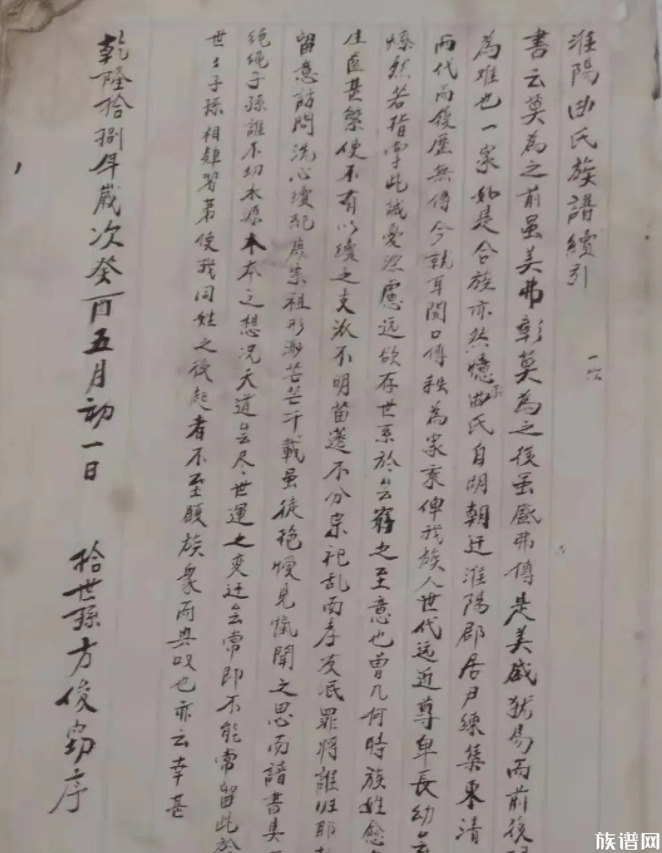 淮陽曲氏族譜續引
一次
書云莫為之前虽美弗彰莫為之後虽盛弗傳是美盛犹易而前後
為难也一家如是合族亦然憶曲氏自明朝迁淮陽郡居尹練集東清
两代而後歷無傳今就耳聞口傳秩為家乘俾我族人世代远近尊卑長幼
燎然若指掌此誠憂深慮远欲存世系於之至意也曾几何時族姓愈
生齒甚繁使不有以續之支派不明苗遂不分宗祀乱而孝友泯罪将誰归耶
留意訪問洗心續紀宗祖形渺芒芒千載虽徒抱慢見愾聞之思而譜書
绝绳子孫誰不切木源本本之想况天道尽世運之变迁常即不能常留此於
世世子孫相肄習第使我同姓之後起者不至顧族衆而興叹也亦云幸甚
乾隆拾捌年歲次癸酉五月初一日
拾世孫方俊序
族谱网